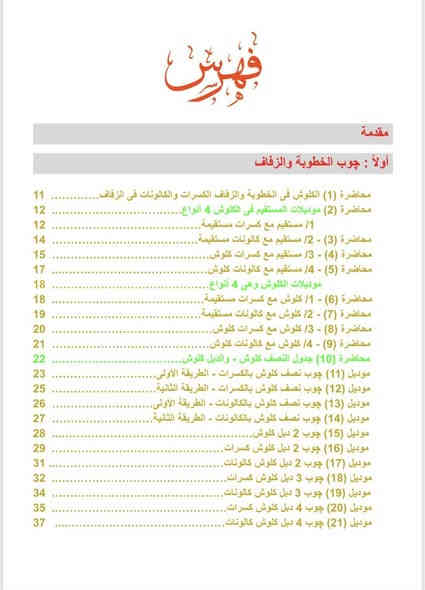 فهرس
مقدمة
أولاً : چوب الخطوبة والزفاف
محاضرة (1) الكلوش فى الخطوبة والزفاف الكسرات والكالونات فى الزفاف............ 11
محاضرة (2) موديلات المستقيم فى الكلوش 4 أنواع................................ 12
1/ مستقيم مع كسرات مستقيمة................................ 12
محاضرة (3) - 2/ مستقيم مع كالونات مستقيمة................................ 14
محاضرة (4) - 3/ مستقيم مع كسرات كلوش................................ 15
محاضرة (5) - 4/ مستقيم مع كالونات كلوش................................ 17
موديلات الكلوش وهى 4 أنواع................................ 18
محاضرة (6) - 1/ كلوش مع كسرات مستقيمة................................ 18
محاضرة (7) - 2/ كلوش مع كالونات مستقيمة................................ 19
محاضرة (8) - 3/ كلوش مع كسرات كلوش................................ 20
محاضرة (9) - 4/ كلوش مع كالونات كلوش................................ 21
محاضرة (10) جدول النصف كلوش - والدبل كلوش................................ 22
موديل (11) چوب نصف كلوش بالكسرات - الطريقة الأولى........................ 23
موديل (12) چوب نصف كلوش بالكسرات - الطريقة الثانية........................ 25
موديل (13) چوب نصف كلوش بالكالونات - الطريقة الأولى........................ 26
موديل (14) چوب نصف كلوش بالكالونات - الطريقة الثانية........................ 27
موديل (15) چوب 2 دبل كلوش................................ 28
موديل (16) چوب 2 دبل كلوش كسرات................................ 29
موديل (17) چوب 2 دبل كلوش كالونات................................ 31
موديل (18) چوب 3 دبل كلوش كسرات................................ 32
موديل (19) چوب 3 دبل كلوش كالونات................................ 34
موديل (20) چوب 4 دبل كلوش كسرات................................ 35
موديل (21) چوب 4 دبل كلوش كالونات................................ 37